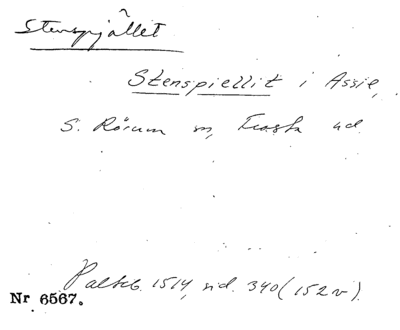 Stenspjället
Stenspiellit i Assie,
S. Rörum sn, Frosta hd.
Palteb. 1514, sid. 340 (152 v).
Nr 6567.